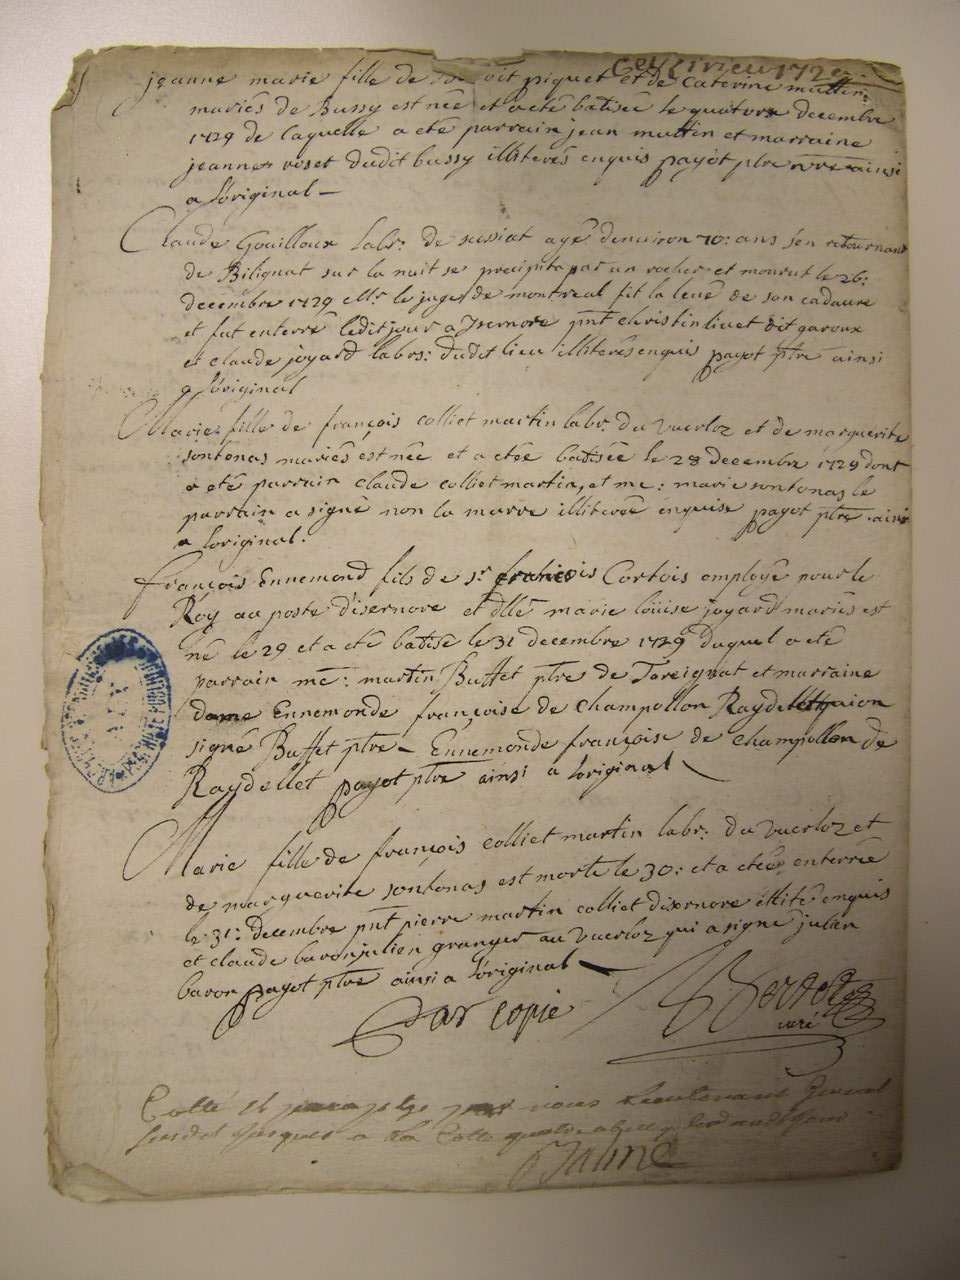 Ceyzerieu 1729
jeanne marie fille de Benoit piquet et de Caterine muttin
mariés de Bussy est née et a eté batisée le quatorze decembre
1729 de laquelle a eté parrain jean muttin et marraine
jeanne roset dudit bussy illiterés enquis payot ptre ainsi
a l'original
Claude Gouilloux labr: de sussiat agé denuiron 70: ans s'en retournant
de Bilignat sur la nuit se precipita par un rocher et mourut le 26:
decembre 1729 Mr. le juge de montreal fit la leué de son cadaure
et fut enterré ledit jour a Isernore pnt christin liuet dit garoux
et claude joyard labrs: dudit lieu illiterés enquis payot ptre ainsi
a l'original
Marie fille de françois colliet martin labr. du vuerloz et de marguerite
sontonas mariés est née et a etée batisée le 28 decembre 1729 dont
a eté parrain claude colliet martin, et me: marie sontonas le
parrain a signé non la marre illiterée enquise payot ptre ainsi
a l'original.
françois Ennemond fils de sr. francois Cortois employé pour le
Roy au poste d'isernore et dlle marie loüise joyard mariés est
né le 29 et a eté batisé le 31 decembre 1729 duquel a eté
parrain me: martin Buffet ptre de Tareignat et marraine
dame Ennemonde françoise de Champollon Raydellet
signé Buffet ptre Ennemonde françoise de champollon de
Raydellet payot ptre ainsi a l'original
Marie fille de françois colliet martin labr. du vuerloz et
de marguerite sontonas est morte le 30: et a etée enterrée
le 31: decembre pnt pierre martin colliet d'ixernore illité enquis
et claude baron julien granger au vuerloz qui a signé julien
baron payot ptre ainsi a l'original
Par copie
curé
Cotté et paraphé par nous Lieutenant General